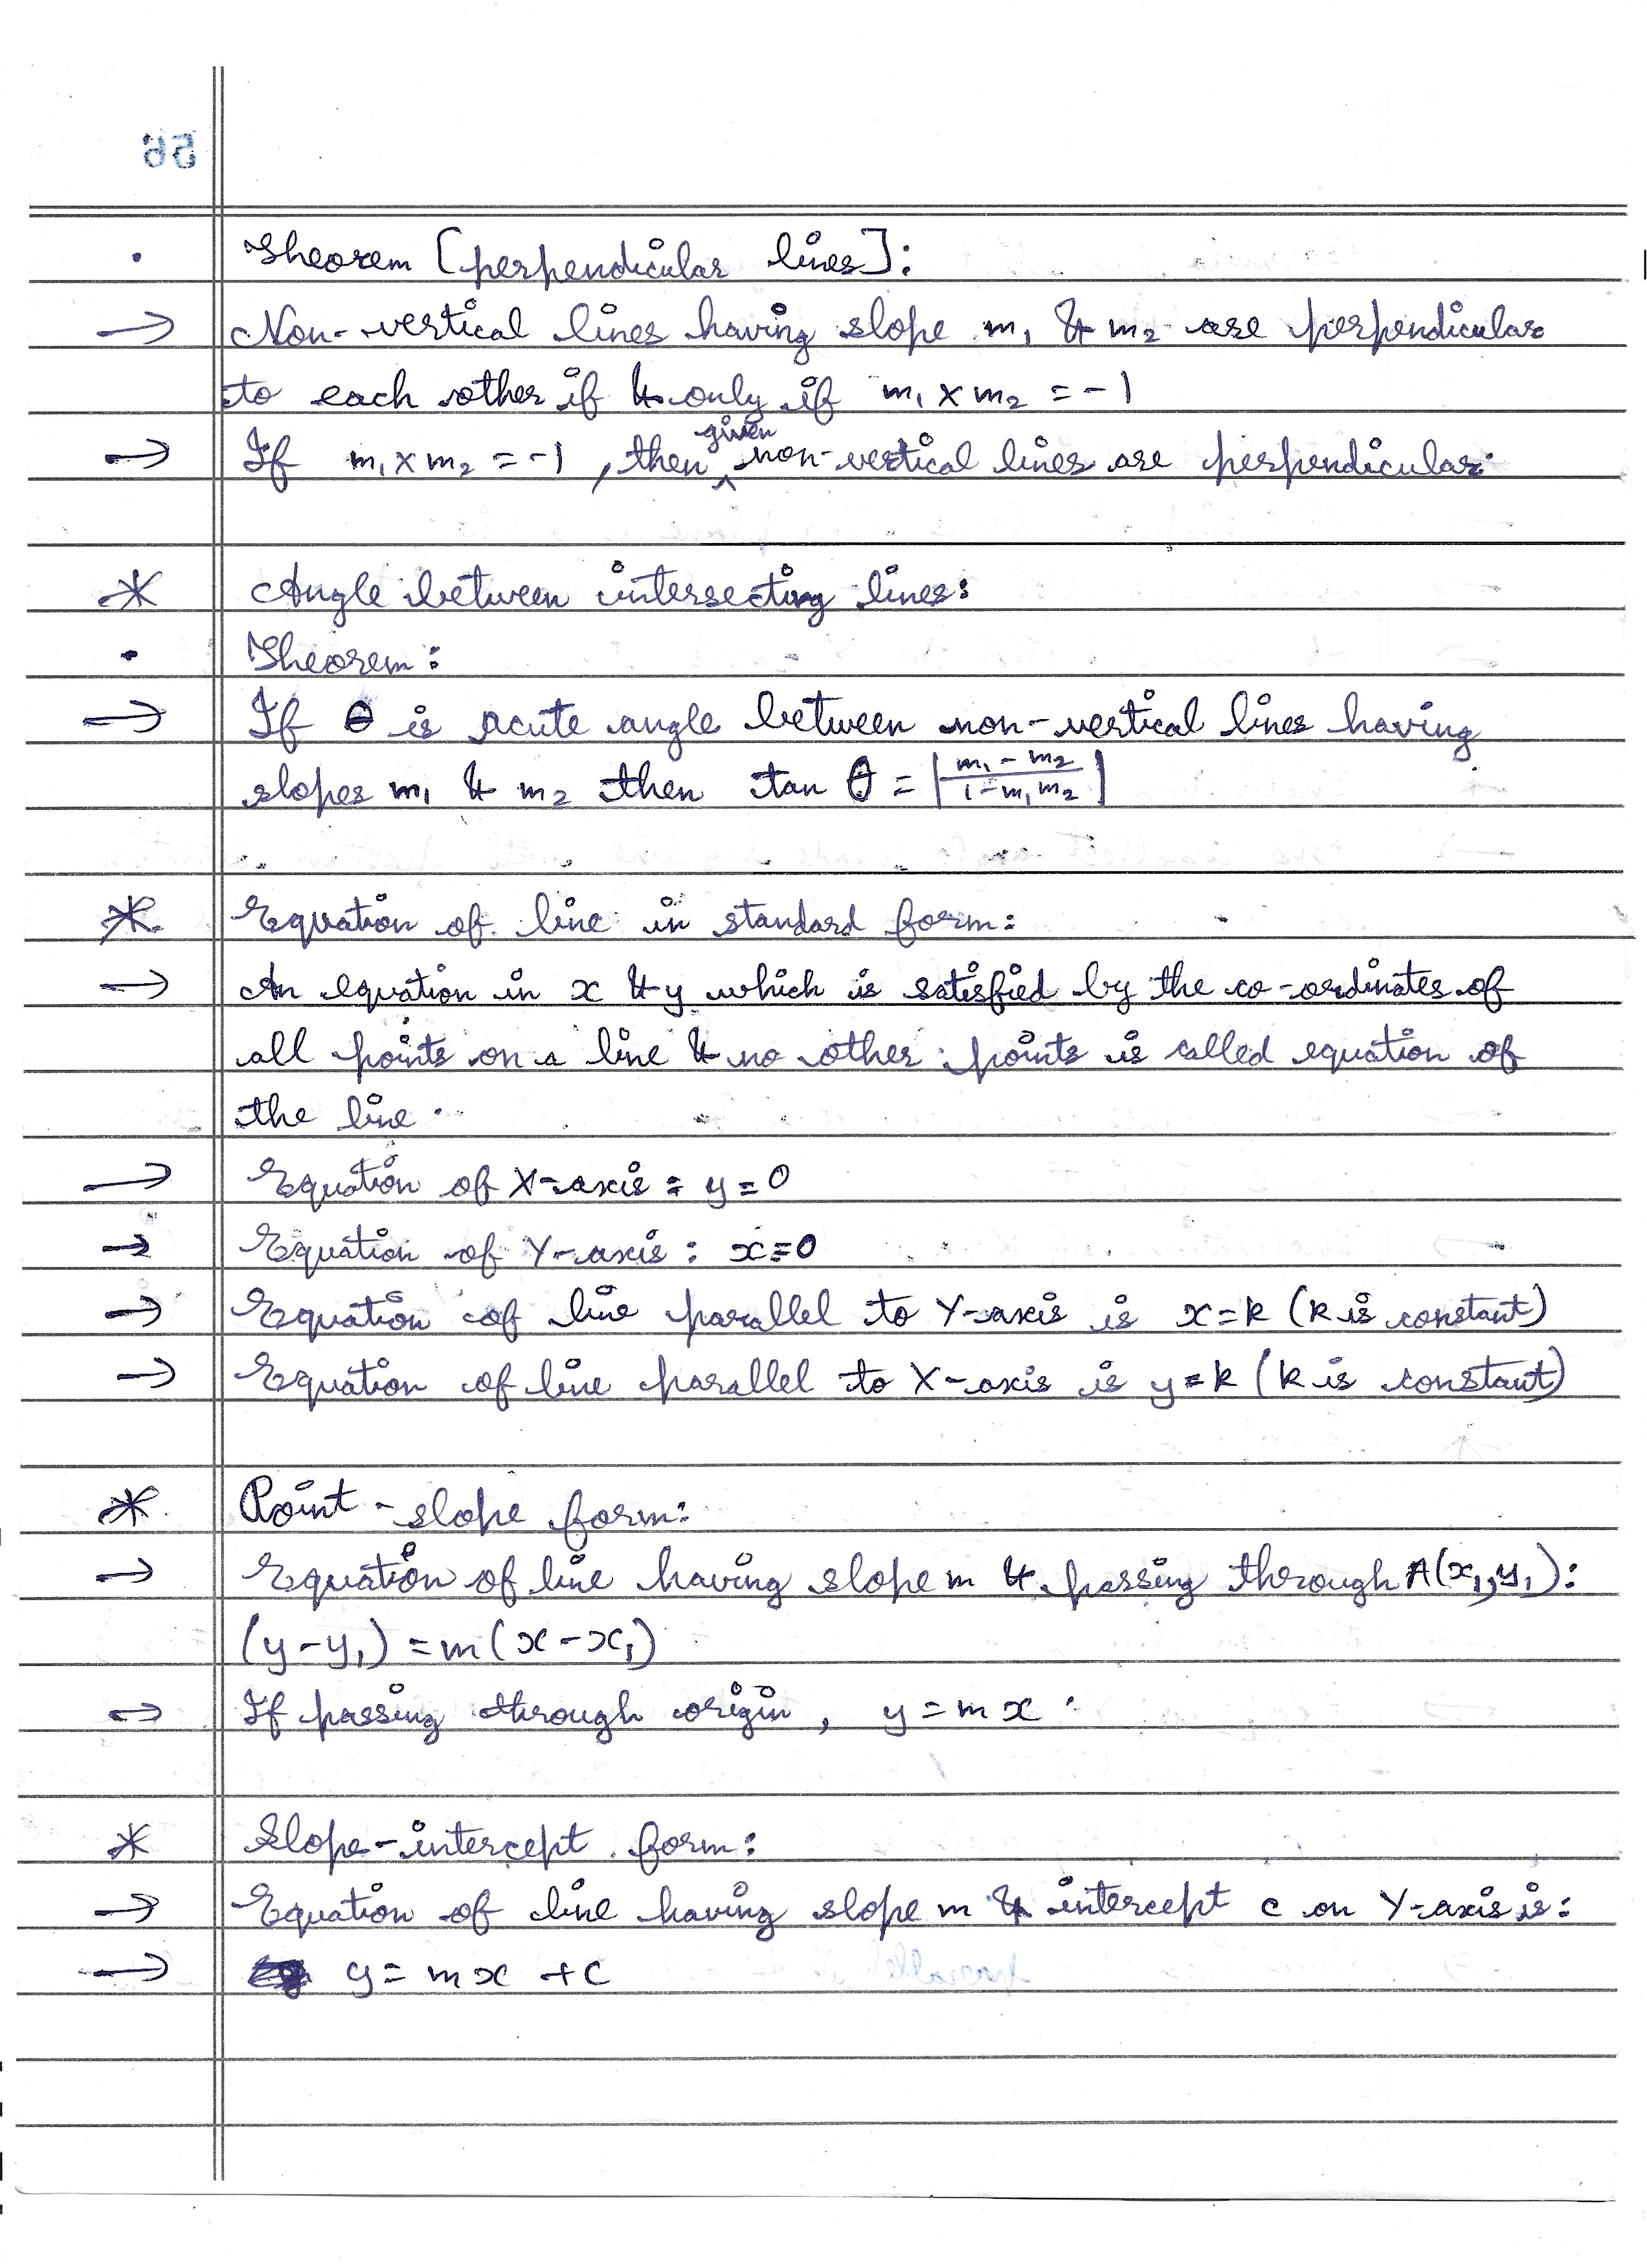 56
• Theorem [perpendicular lines]:
→ Non-vertical lines having slope m₁ & m₂ are perpendicular
to each other if & only if m₁ × m₂ = -1
→ If m₁ × m₂ = -1, then given non-vertical lines are perpendicular.
* Angle between intersecting lines:
• Theorem:
→ If θ is acute angle between non-vertical lines having
slopes m₁ & m₂ then tan θ = |(m₁ - m₂)/(1 - m₁m₂)|
* Equation of line in standard form:
→ An equation in x & y which is satisfied by the co-ordinates of
all points on a line & no other points is called equation of
the line.
→ Equation of X-axis : y = 0
→ Equation of Y-axis : x = 0
→ Equation of line parallel to Y-axis is x = k (k is constant)
→ Equation of line parallel to X-axis is y = k (k is constant)
* Point-slope form:
→ Equation of line having slope m & passing through A(x₁, y₁):
(y - y₁) = m(x - x₁)
→ If passing through origin, y = mx.
* Slope-intercept form:
→ Equation of line having slope m & intercept c on Y-axis is:
→ y = mx + c